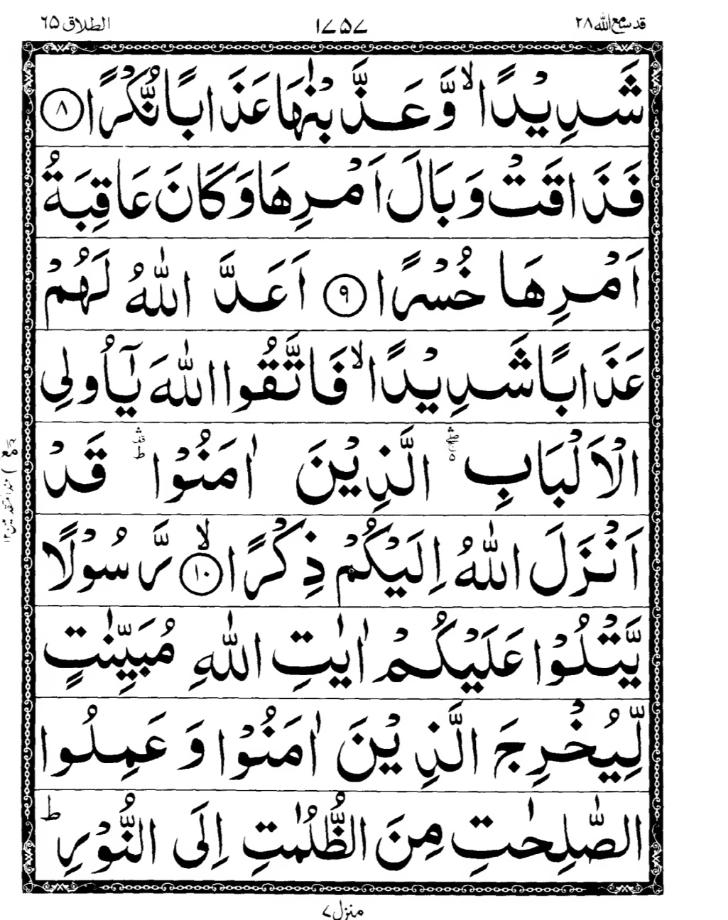 قد سمع الله ٢٨
١٧٥٧
الطلاق ٦٥
شَدِيْدًا ۙ وَّ عَذَّبْنٰهَا عَذَابًا نُّكْرًا ۝٨
فَذَاقَتْ وَبَالَ اَمْرِهَا وَكَانَ عَاقِبَةُ
اَمْرِهَا خُسْرًا ۝٩ اَعَدَّ اللّٰهُ لَهُمْ
عَذَابًا شَدِيْدًا ۙ فَاتَّقُوا اللّٰهَ يٰٓاُولِى
الْاَلْبَابِ ۛ الَّذِيْنَ اٰمَنُوْا ۛ قَدْ
اَنْزَلَ اللّٰهُ اِلَيْكُمْ ذِكْرًا ۙ ۝١٠ رَّسُوْلًا
يَّتْلُوْا عَلَيْكُمْ اٰيٰتِ اللّٰهِ مُبَيِّنٰتٍ
لِّيُخْرِجَ الَّذِيْنَ اٰمَنُوْا وَ عَمِلُوا
الصّٰلِحٰتِ مِنَ الظُّلُمٰتِ اِلَى النُّوْرِ ؕ
منزل ٧